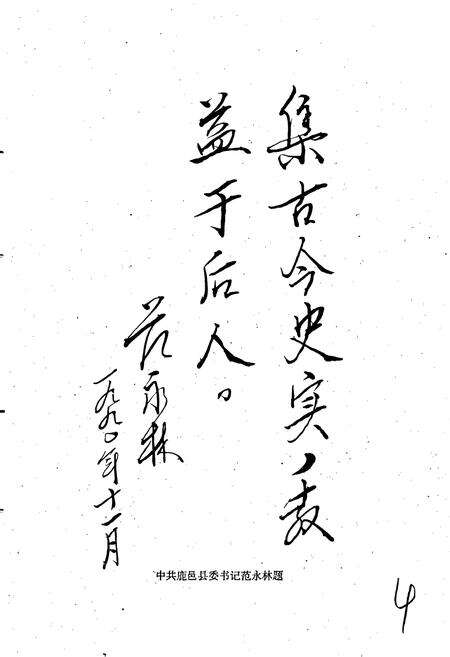 集古今史实，教
益于后人。
范永林
一九九〇年十一月
中共鹿邑县委书记范永林题
4